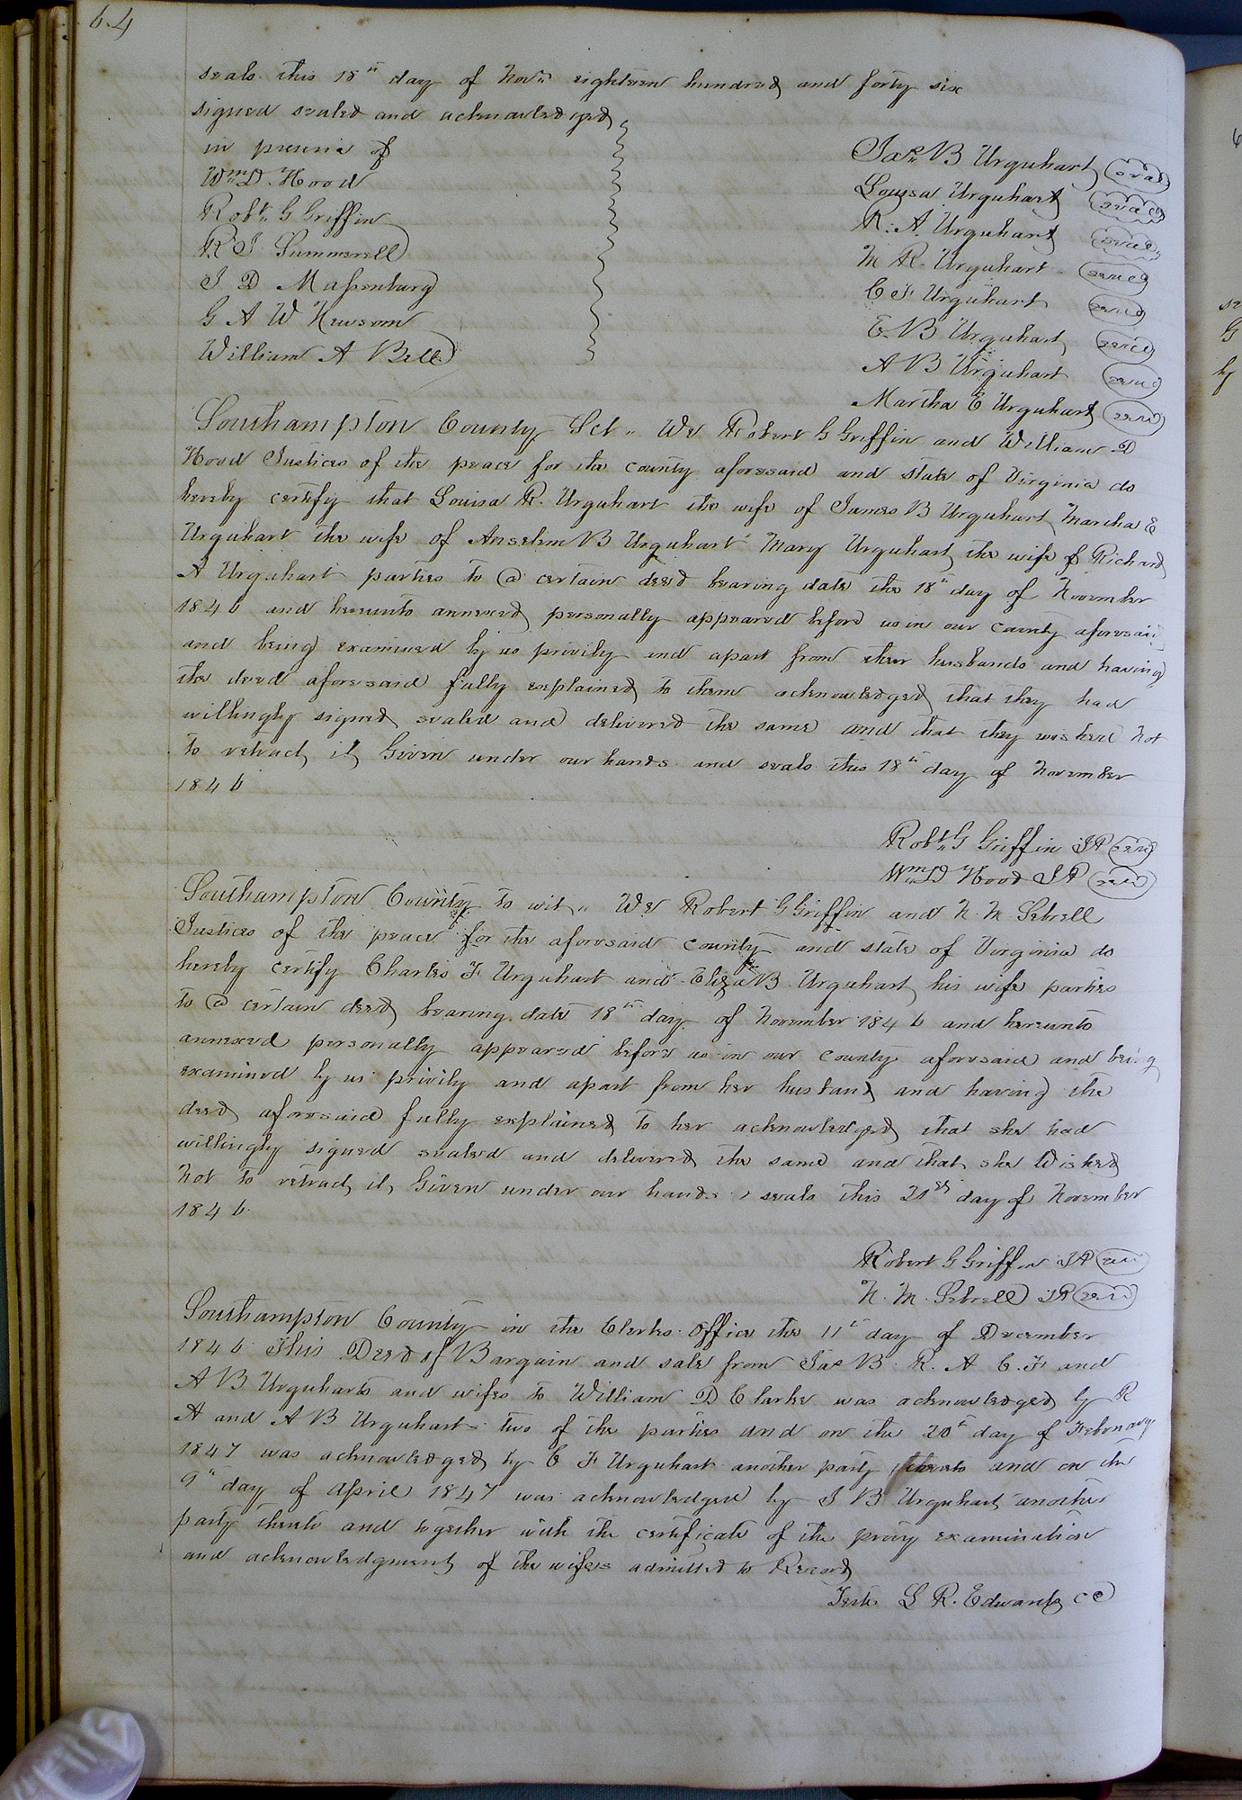 64
seals this 18th day of Novr eighteen hundred and forty six
signed sealed and acknowledged
in presence of
Wm D. Hood
Robt G Griffin
R J Summerell
J D Massenburg
G A W Newsom
William A Bell
Jas B Urquhart seal
Louisa Urquhart seal
R. A. Urquhart seal
M R. Urquhart seal
C F Urquhart seal
E. B Urquhart seal
A B Urquhart seal
Martha E Urquhart seal
Southampton County Sct. We Robert G Griffin and William D
Hood Justices of the peace for the county aforesaid and state of Virginia do
hereby certify that Louisa R. Urquhart the wife of James B Urquhart Martha E
Urquhart the wife of Anselm B Urquhart Mary Urquhart the wife of Richard
A Urquhart parties to a certain deed bearing date the 18th day of November
1846 and hereunto annexed personally appeared before us in our county aforesaid
and being examined by us privily and apart from their husbands and having
the deed aforesaid fully explained to them acknowledged that they had
willingly signed sealed and delivered the same and that they wished not
to retract it, Given under our hands and seals this 18th day of November
1846
Robt G Griffin JP seal
Wm D Hood JP seal
Southampton County to wit, We Robert G Griffin and N. M Sebrell
Justices of the peace for the aforesaid county and state of Virginia do
hereby certify Charles F Urquhart and Eliza B. Urquhart his wife parties
to a certain deed bearing date 18th day of November 1846 and hereunto
annexed personally appeared before us in our county aforesaid and being
examined by us privily and apart from her husband and having the
deed aforesaid fully explained to her acknowledged that she had
willingly signed sealed and delivered the same and that she wished
not to retract it, Given under our hands & seals this 21st day of November
1846.
Robert G Griffin JP seal
N. M. Sebrell JP seal
Southampton County in the Clerks office the 11th day of December
1846 This Deed of Bargain and sale from Jas B. R. A C. F and
A B Urquharts and wifes to William D Clarke was acknowledged by R
A and A B Urquhart two of the parties and on the 20th day of February
1847 was acknowledged by C F Urquhart another party thereto and on the
9th day of April 1847 was acknowledged by J B Urquhart another
party thereto and together with the certificate of the privy examination
and acknowledgment of the wifes admitted to Record
Teste L R. Edwards CC